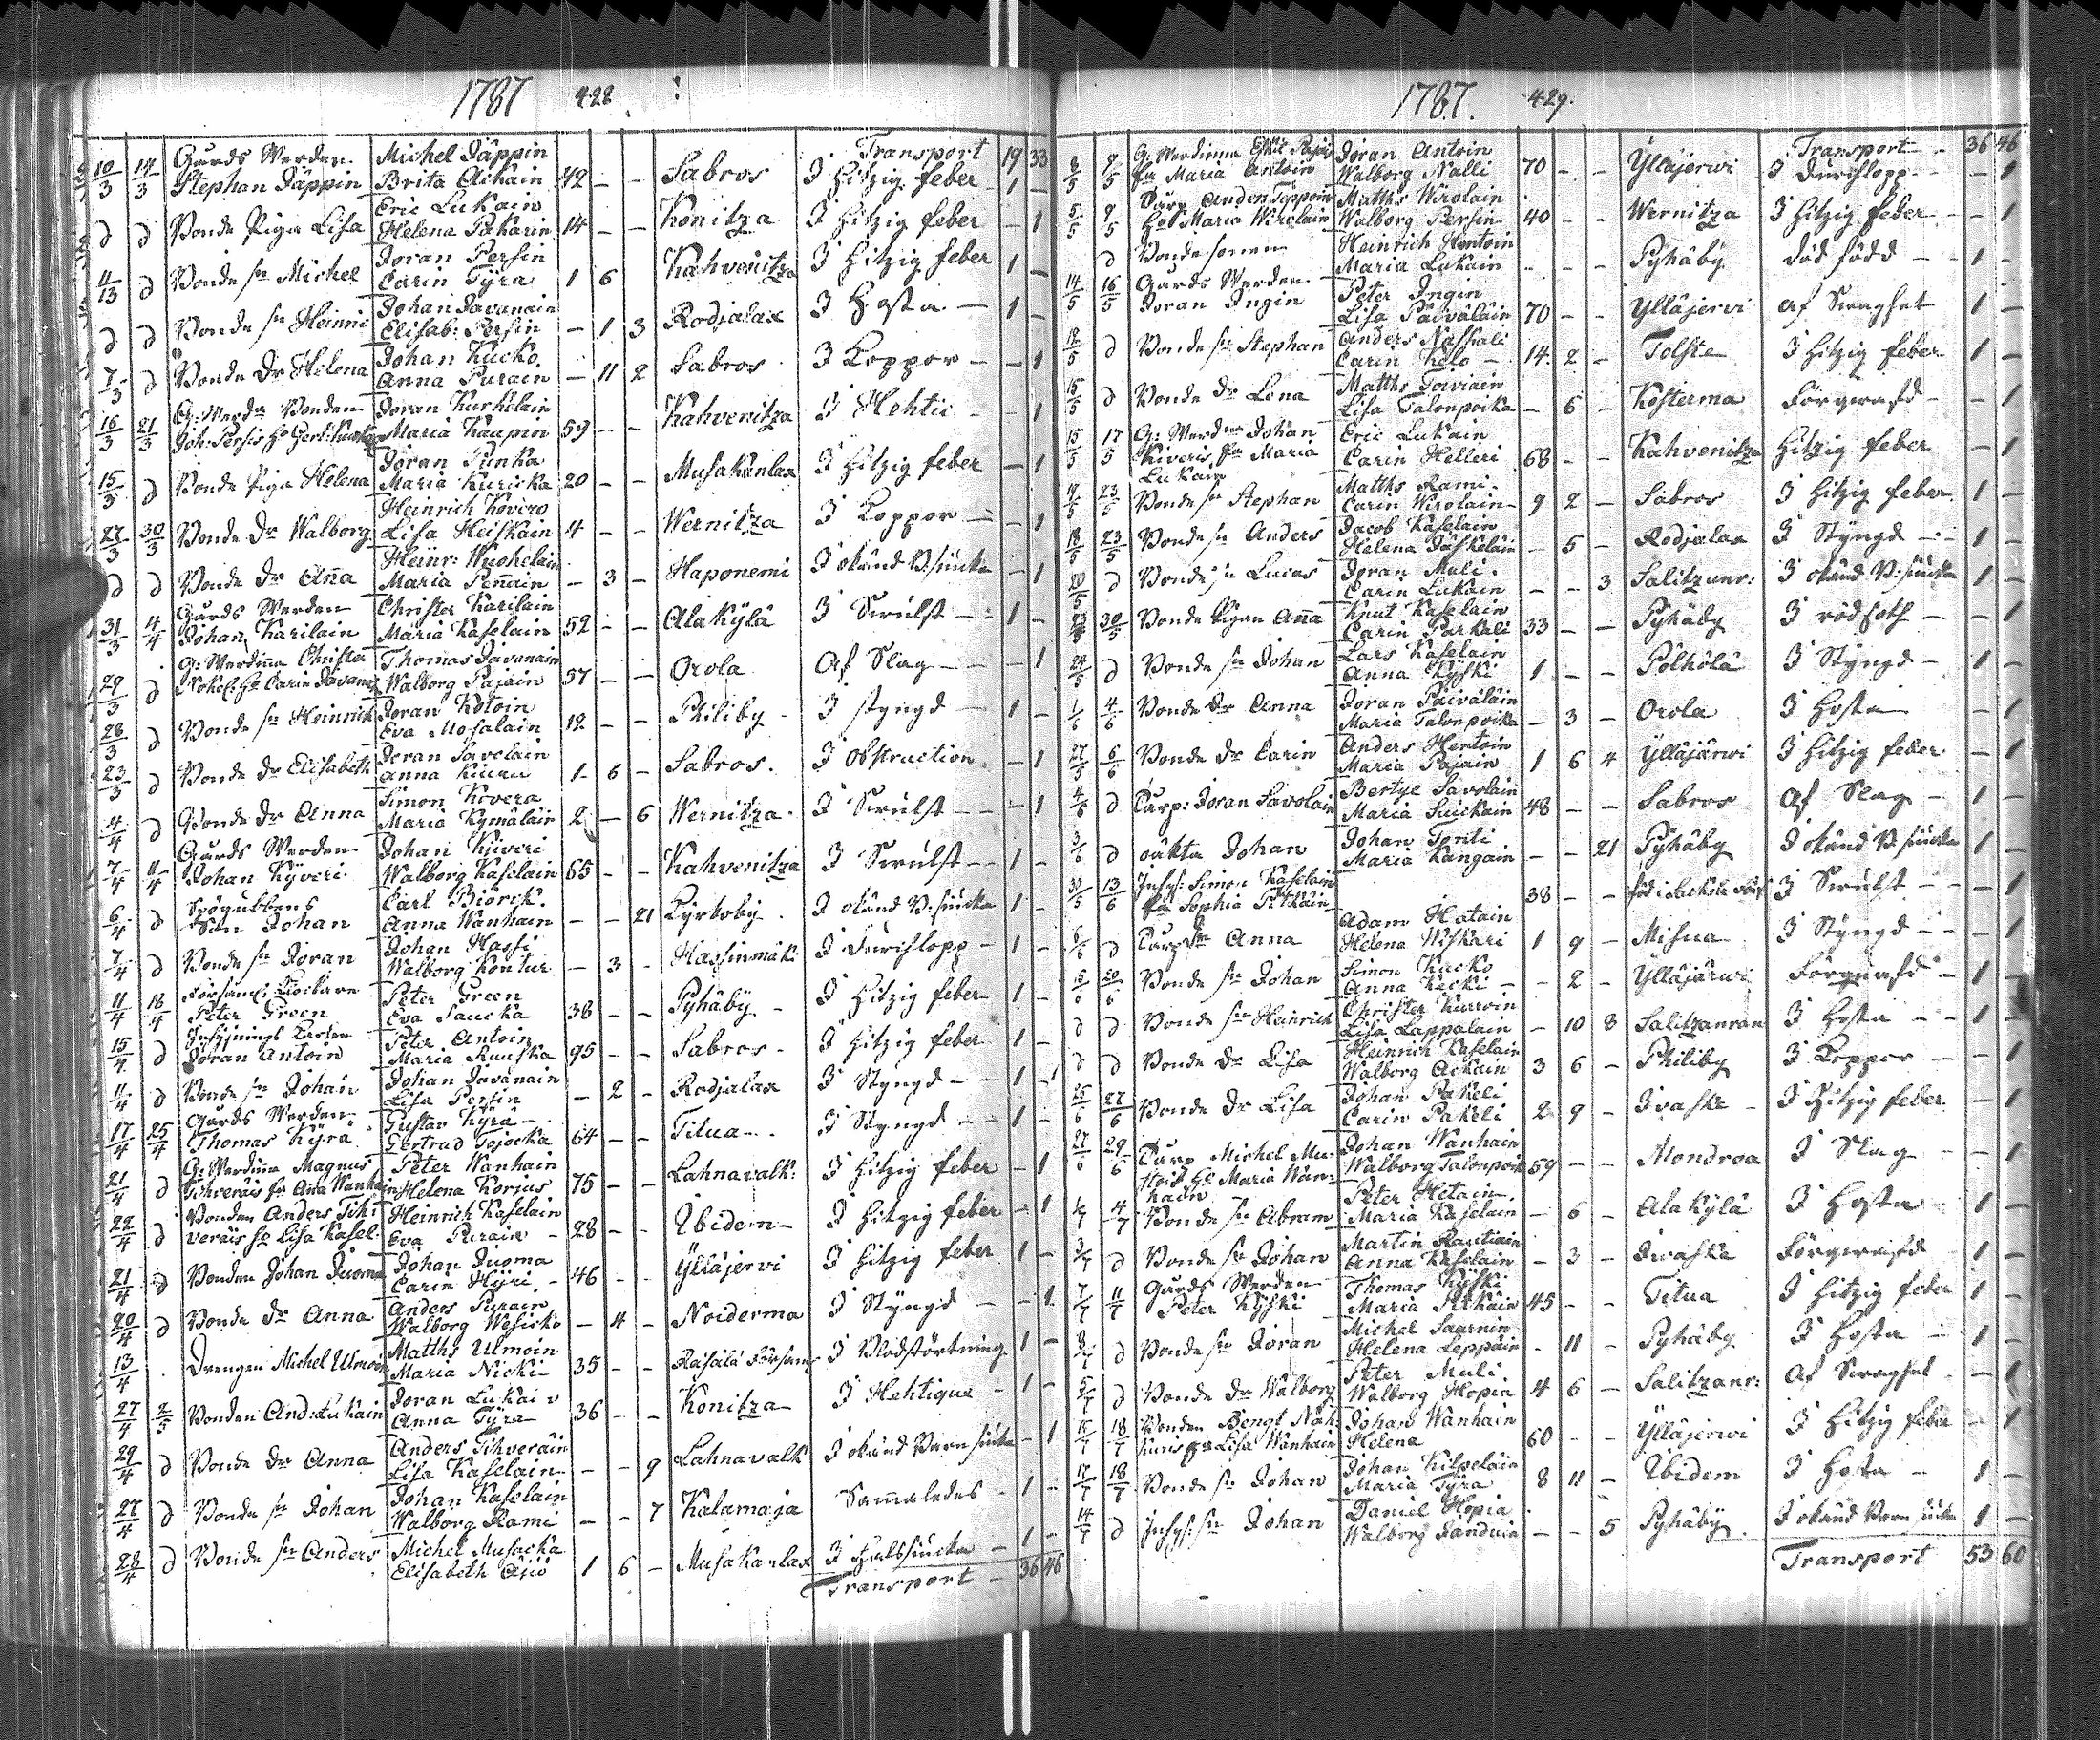 1787 428
Transport 19 33
10/3 14/3 Gårds Werden Michel Jäppin
Stephan Jäppin Brita Ackain 42 - - Sabros I hitzig feber 1 -
d d Bonde Piga Lisa Eric Lukain
Helena Pukarin 14 - - Konitza I hitzig feber - 1
11/13 d Bonde sn Michel Joran Persin
Carin Tyra 1 6 Kahvenitza I hitzig feber 1 -
d d Bonde sn Heinric Johan Javanain
Elisab: Persin - 1 3 Rodjalax I Hosta - 1 -
7/3 d Bonde Dr Helena Johan Kucko
Anna Purain - 11 2 Sabros I Koppor - - 1
16/3 21/3 G: Werdn Bonden Joran Kurkelain
Joh: Persis Ha Gert: Maria Kaupin 59 - - Kahvenitza I Hehtic - - 1
15/3 d Bonde Piga Helena Joran Punka
Maria Kuricka 20 - - Musakanlax I hitzig feber - 1
27/3 30/3 Bonde Dr Walborg Heinrich Kovero
Lisa Heiskain 4 - - Wernitza I Koppor - - 1
d d Bonde Dr Anna Heinr: Wuohelain
Maria Pennain - 3 - Haponemi I okänd B:siucka - 1
31/3 4/4 Gårds Werden Christer Karilain
Johan Karilain Maria Kaselain 52 - - Alakylä I Swulst - - 1 -
29/3 d G: Werdina Christer Thomas Javanain
Ha Carin Walborg Pajain 37 - - Orola Af Slag - - - 1
28/3 d Bonde sn Heinrich Joran Kotoin
Eva Mosalain 12 - - Philiby - I styngd - 1 -
23/3 d Bonde Dr Elisabeth Joran Savolain
Anna 1 - 6 - Sabros. I Obstruction - 1
4/4 d Bonde Dr Anna Simon Kovera
Maria Kymäläin 2 - 6 Wernitza I Swulst - - - 1
7/4 11/4 Gårds Werden Johan Kyveri
Johan Kyveri Walborg Kaselain 65 - - Kahvenitza I Swulst - - 1 -
6/4 d Carl Biörck.
Son Johan Anna Wanhain - - 21 Kyrkoby I okänd B:siucka 1 -
7/4 d Bonde sn Joran Johan Hassi
Walborg Kontur - 3 - Hassinmäki I Durchlopp - 1 -
11/4 18/4 Församl: Klockare Peter Green
Peter Green Eva Saucka 38 - - Pyhäby - I hitzig feber 1 -
15/4 d Peter Antoin
Joran Antoin Maria Ruuska 95 - - Sabros - I hitzig feber 1 -
11/4 d Bonde sn Johan Johan Javanain
Lisa Persin - 2 - Rodjalax I Styngd - - 1 -
17/4 25/4 Gårds Werden Gustav Kyrä
Thomas Kyrä Gertrud 64 - - Titua - . I Styngd - - 1 -
21/4 d G: Werdina Magnus Peter Wanhain
Tihveräis ha Anna Wanhain Helena Korjus 75 - - Lahnavalk: I hitzig feber - 1
22/4 d Bonden Anders Tih: Heinrich Kaselain
veräis ha Lisa Kasel: Eva Purain - 28 - - Ibidem - I hitzig feber - 1
21/4 d Bonden Johan Juoma Johan Juoma
Carin Hyri - 46 - - Ylläjervi I hitzig feber 1 -
20/4 d Bonde Dr Anna Anders Purain
Walborg Wesicko - 4 - Noiderma I Styngd - - 1
13/4 . Drengen Michel Ulmoin Matths Ulmoin
Maria Nicki - 35 - - Räisälä Församl I Blodstörtning 1 -
27/4 2/5 Bonden And: Lukain Joran Lukain
Anna Tyra 36 - - Konitza I Hehtique - 1 -
29/4 d Bonde Dr Anna Anders Tihveräin
Lisa Kaselain - - 9 Lahnavalk I okänd Barn siucka - 1
27/4 d Bonde sn Johan Johan Kaselain
Walborg Rami - - 7 Kalamaja Sammaledes - 1 -
28/4 d Bonde sn Anders Michel Musacka
Elisabeth Äijö 1 6 - Musakanlax I Halssiucka - 1 -
Transport - 36 46
1787. 429.
Transport - 36 46
2/5 7/5 G: Werdinna Joran Antoin
ha Maria Antoin Walborg Nalli 70 - - Ylläjerwi I Durchlopp - - - 1
5/5 7/5 Torp Anders Teppoin Matths Wirolain
Ha Maria Wirolain Walborg Persin 40 - - Wernitza I hitzig feber - - 1
d Bonde sonen Heinrich Hentoin
Maria Lukain - - - Pyhäby död född - - 1 -
14/5 16/5 Gårds Werden Peter Ingin
Joran Ingin Lisa Päiväläin 70 - - Ylläjervi af Swaghet 1 -
12/5 d Bonde sn Stephan Anders Naskali
Carin Kelo - 14. 2 - Tolste I hitzig feber 1 -
15/5 d Bonde Dr Lena Matths Toiviain
Lisa Talonpoika - 6 - Kosterma Förgwafd - - 1
15/5 17/5 G: Werdna Johan Eric Lukain
Kiveris ha Maria Carin Helleri 68 - - Kahvenitza hitzig feber - 1
Lukain
19/5 23/5 Bonde sn Stephan Matths Rami.
Carin Wirolain - 9 2 - Sabros I hitzig feber 1 -
18/5 23/5 Bonde sn Anders Jacob Kaselain
Helena Jäskeläin - 5 - Rodjalax I Styngd - - 1 -
20/5 d Bonde sn Lucas Joran Muli.
Carin Lukain - - 3 Salitzanr: I okänd B:siucka 1 -
30/5 Bonde Pigan Anna Knut Kaselain
Carin Parkali 33 - - Pyhäby I rödsoth - - 1
24/5 d Bonde sn Johan Lars Kaselain
Anna Kyski 1 - - Pölhölä I Styngd - 1 -
1/6 4/6 Bonde Dr Anna Joran Päiväläin
Maria Talonpoika - 3 - Orola I Hosta - 1
27/5 6/6 Bonde Dr Carin Anders Hentoin
Maria Pajain 1 6 4 Ylläjärwi I hitzig feber - 1
4/6 d Torp: Joran Savolain Bertil Savolain
Maria Suickain 48 - - Sabros af Slag - 1 -
3/6 d oäkta Johan Johan Tonti
Maria Kangain - - 21 Pyhäby I okänd B siucka 1 -
30/5 13/6 Inhys: Simon Kaselain
ha Sophia Pitkäin 38 - - I Swulst - - - 1
6/6 d Torp Dr Anna Adam Hatain
Helena Wiskari 1 9 - Misua I Styngd - - - 1
15/6 20/6 Bonde sn Johan Simon Kucko
Anna Kecki - - 2 - Ylläjärwi Förgwafd - 1 -
d d Bonde sn Heinrich Christer Kurvoin
Lisa Lappalain - 10 8 Salitzanran I Hosta - - 1 -
d d Bonde Dr Lisa Heinrich Kaselain
Walborg Ackain 3 6 - Philiby I Koppor - - 1
25/6 27/6 Bonde Dr Lisa Johan Pakeli
Carin Pakeli 2 9 - Ivaska - I hitzig feber - 1
27/6 29/6 Torp Michel Mu- Johan Wanhain
Ha Maria Wan- Walborg Talonpoik 59 - - Mondroa I Slag - - 1
hain
4/7 Bonde sn Abram Peter Hetain -
Maria Kaselain - 6 - Alakylä I Hosta 1 -
3/7 d Bonde sn Johan Martin Rautiain
Anna Kaselain - 3 - Iwaska Förgwafd 1 -
7/7 11/7 Gårds Werden Thomas Kyski
Peter Kyski Maria Pitkäin 45 - - Titua I hitzig feber 1 -
d Bonde sn Joran Michel Saarnin
Helena Leppäin - 11 - Pyhäby I Hosta - 1 -
5/7 d Bonde Dr Walborg Peter Muli.
Walborg Hopia 4 6 - Salitzanr: af Swaghet - 1
15/7 18/7 Bonden Bengt Johan Wanhain
ha Lisa Wanhain Helena 60 - - Ylläjerwi I hitzig feber - 1
17/7 18/7 Bonde sn Johan Johan Kilpeläin
Maria Tyra 8 11 - Ibidem I Hosta - 1 -
14/7 d Inhys: sn Johan Daniel Hopia
Walborg - - 5 Pyhäby I okänd Barn siucka 1 -
Transport 53 60